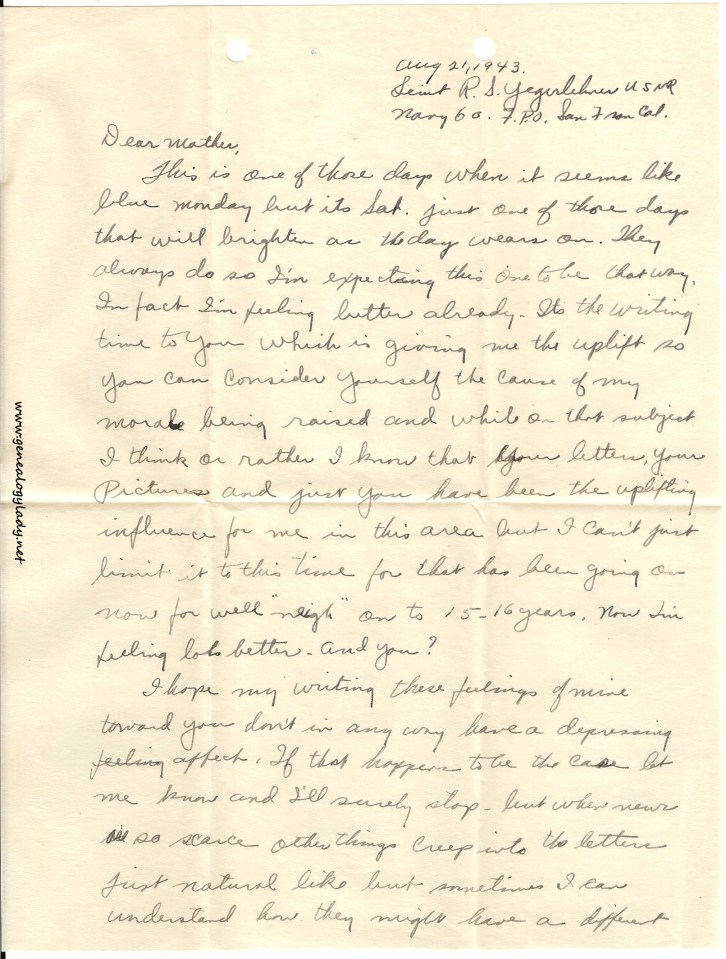 Aug 21, 1943.
Lieut R. S. Yegerlehner USNR
Navy 60. F.P.O. San Fran Cal.
Dear Mother,
This is one of those days when it seems like
blue monday but its Sat. just one of those days
that will brighten as the day wears on. They
always do so I'm expecting this one to be that way.
In fact I'm feeling better already. Its the writing
time to you which is giving me the uplift so
you can consider yourself the cause of my
morale being raised and while on that subject
I think or rather I know that your letters, your
Pictures and just you have been the uplifting
influence for me in this area but I can't just
limit it to this time for that has been going on
now for well "neigh" on to 15-16 years. Now I'm
feeling lots better - And you?
I hope my writing these feelings of mine
toward you don't in any way have a depressing
feeling affect. If that happens to be the case let
me know and I'll surely stop - but when news
is so scarce other things creep into the letters
just natural like but sometimes I can
understand how they might have a different
www.genealogylady.net